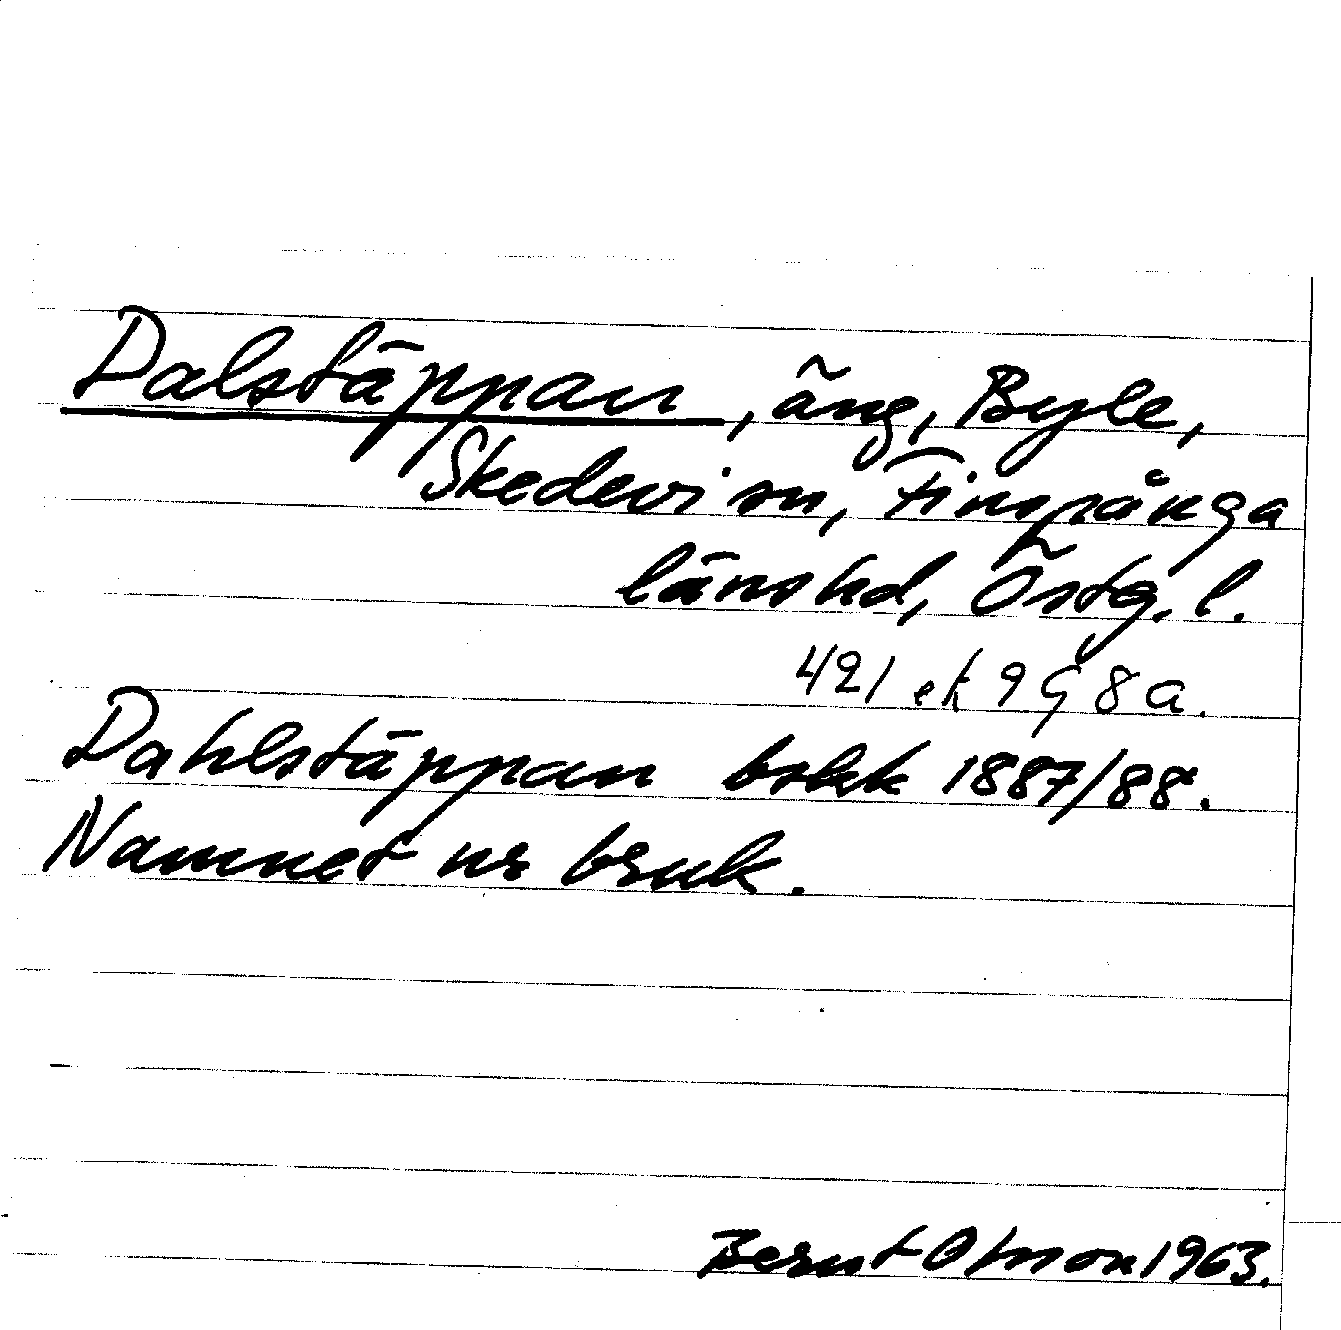 Dalstäppan, äng, Byle,
Skedevi sn, Finspånga
länshd, Östg. l.
421 ek 9 G 8 a.
Dahlstäppan bskk 1887/88.
Namnet ur bruk.
Bernt Olsson 1963.